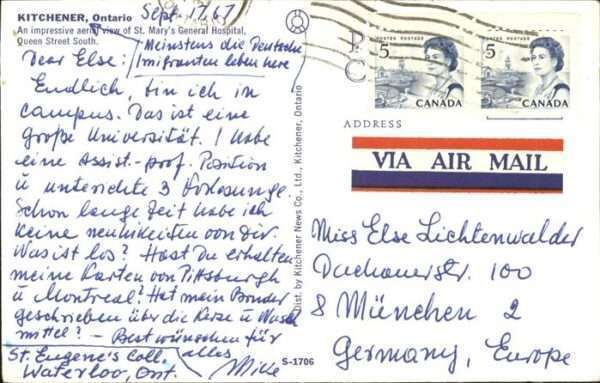 KITCHENER, Ontario
Sept. 17/67
An impressive aerial view of St. Mary's General Hospital,
Queen Street South.
Meinstens die Deutsche
Imigranten leben here
Dear Else:
Endlich, bin ich in
campus. Das ist eine
große Universität. I habe
eine Assist.-prof. Position
u unterichte 3 Vorlesunge.
Schon lange Zeit habe ich
keine neuhikeiten von Dir.
Was ist los? Hast Du erhalten
meine Karten von Pittsburgh
u Montreal? Hat mein Bruder
geschrieben über die Kerze u Wasch
mittel? – Best wünschen für
alles
Mike
St. Eugene's Coll.
Waterloo, Ont.
Dist. by Kitchener News Co., Ltd., Kitchener, Ontario
S-1706
P
C
5
POSTES POSTAGE
CANADA
5
POSTES POSTAGE
CANADA
ADDRESS
VIA AIR MAIL
Miss Else Lichtenwalder
Dachauerstr. 100
8 München 2
Germany, Europe